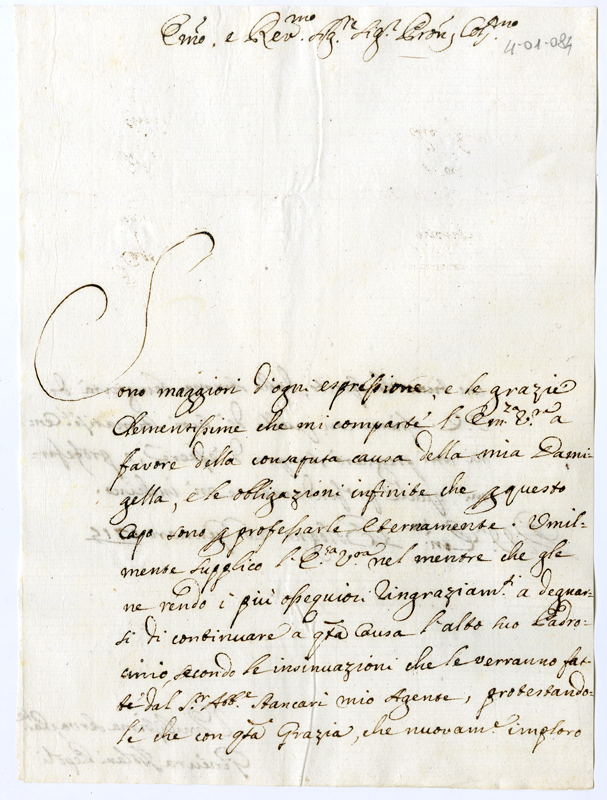 Em̃o. e Rev.mo Sig.re Sig.r Pron̄ Col.mo
4-01-084
Sono maggiori d'ogni espressione, e le grazie
Clementissime che mi comparte l'Em.za V.ra a
favore della consaputa causa della mia Dami-
gella, e le obligazioni infinite che p questo
Capo sono p professarle eternamente. Umil-
mente supplico l'E.za V.ra nel mentre che gle
ne rendo i più ossequiosi ringraziam.ti a degnar-
si di continuare a qsta Causa l'alto suo Padro-
cinio, secondo le insinuazioni che le verranno fat-
te dal S.r Abb.e Stancari mio Agente, protestando-
le che con qsta Grazia, che nuovam.e imploro